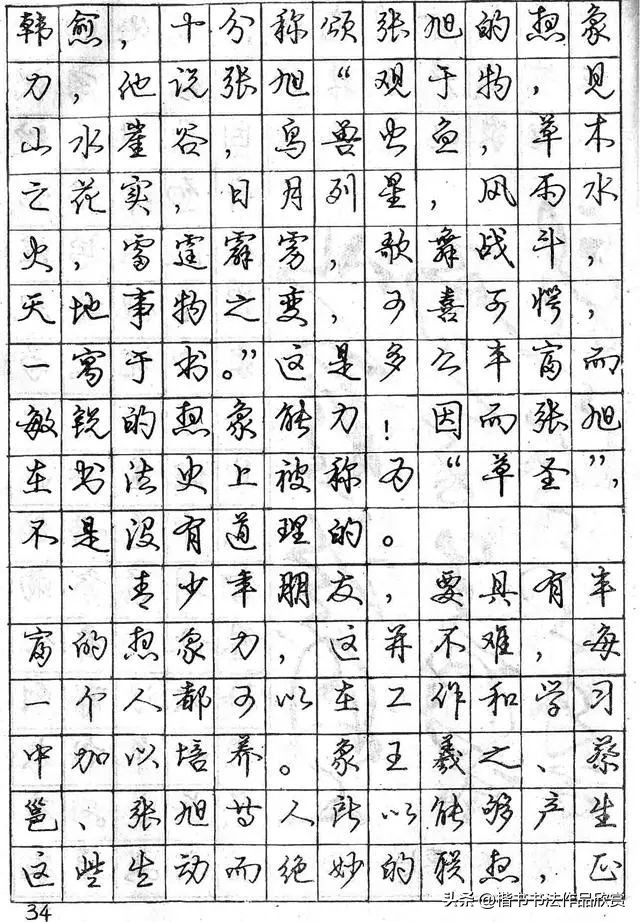 韩愈，十分称颂张旭的想象
力，他说张旭“观于物，见
山水崖谷，鸟兽虫鱼，草木
之花实，日月列星，风雨水
火，雷霆霹雳，歌舞战斗，
天地事物之变，可喜可愕，
一寓于书。”这是多么丰富而
敏锐的想象能力！因而张旭
在书法史上被称为“草圣”，
不是没有道理的。
青少年朋友，要具有丰
富的想象力，这并不难，每
一个人都可以在工作和学习
中加以培养。象王羲之、蔡
邕、张旭等人所以能够产生
这些生动而绝妙的联想，正
34
头条@楷书书法作品欣赏